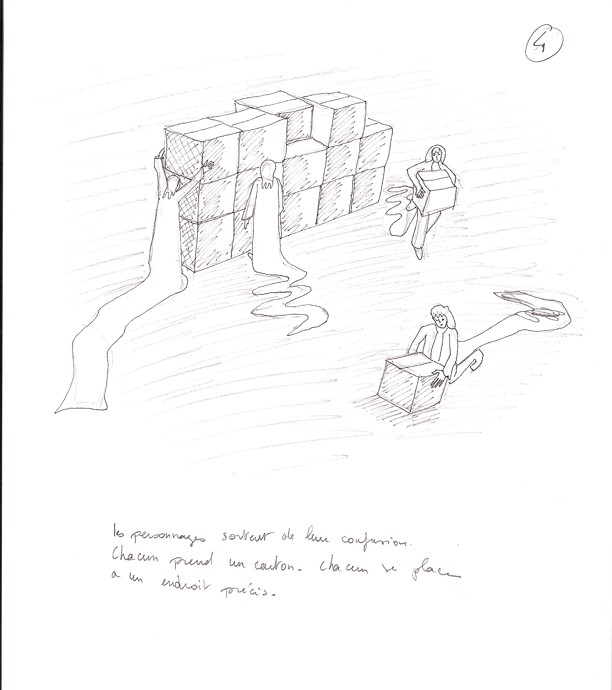 4
les personnages sortent de leur confusion.
Chacun prend un carton. Chacun se place
a un endroit précis.